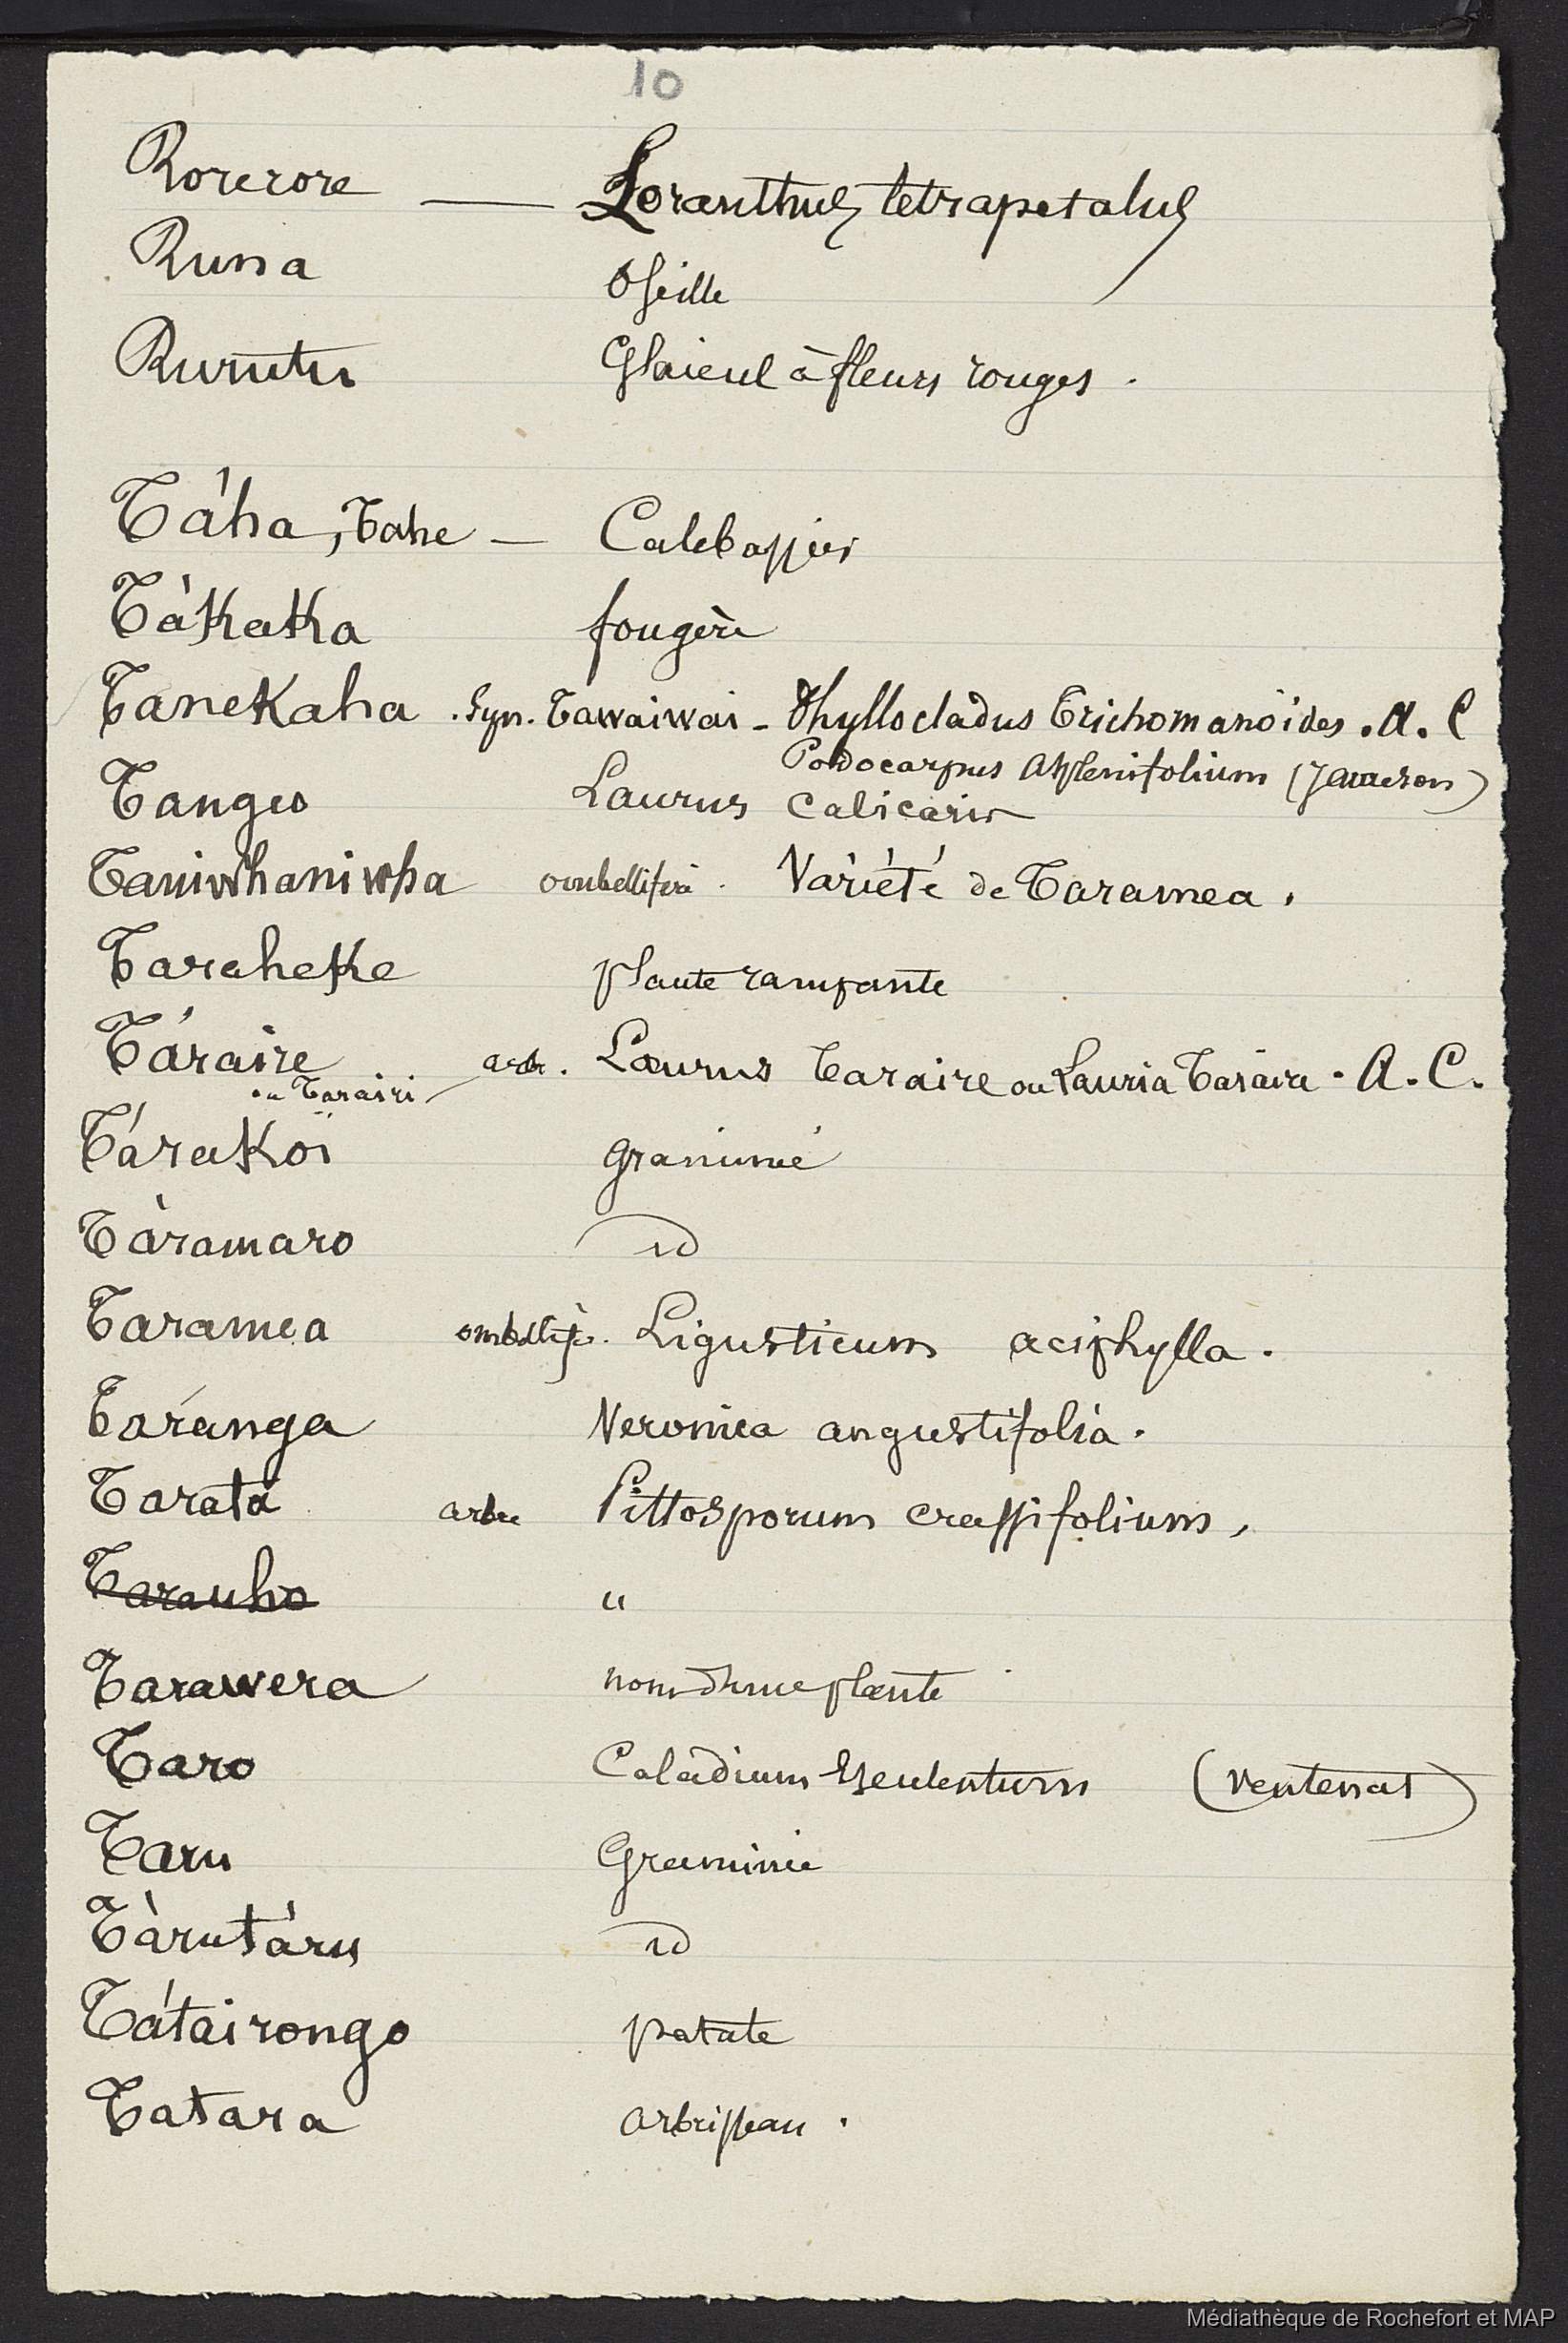 10
Rorerore — Loranthus tetrapetalus
Runa Oseille
Rurutu Glaieul à fleurs rouges.
Táha, Tahe — Calebassier
Tàkaka fougère
Tanekaha . Syn. Tawaiwai - Phyllocladus Trichomanoïdes . A. C
Podocarpus Asplenifolium
Tangeo Laurus Calicaris
Taniwhaniwha ombellifère. Váriété de Taramea.
Taraheke plante rampante
Táraire arb. Laurus Taraire ou Lauria Taraira. A. C.
ou Tarairi
Tárakoï graminée
Tàramaro id
Taramea ombellifè. Ligusticum aciphylla.
Taranga Veronica angustifolia.
Tarata arbre Pittosporum crassifolium,
Tarauho "
Tarawera nom d'une plante
Taro Caladium Esculentum (Ventenat)
Taru Graminée
Tàrutáru id
Tátairongo patate
Tatara arbrisseau.
Médiathèque de Rochefort et MAP